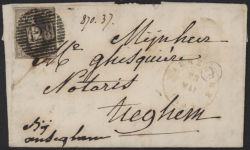 128
870.37.
Mijnheer
Mr ghesquière
Notaris
Tieghem
Bij